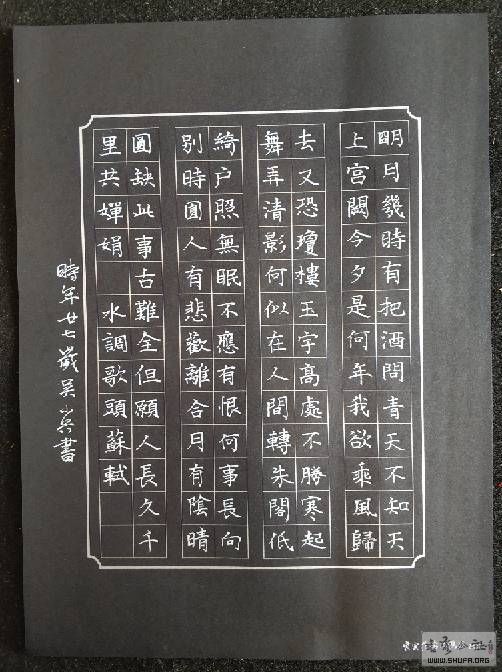 明月幾時有把酒問青天不知天
上宮闕今夕是何年我欲乘風歸
去又恐瓊樓玉宇高處不勝寒起
舞弄清影何似在人間轉朱閣低
綺户照無眠不應有恨何事長向
别時圓人有悲歡離合月有陰晴
圓缺此事古難全但願人長久千
里共嬋娟 水調歌頭蘇軾
時年廿七歲吴書
WWW.SHUFA.ORG